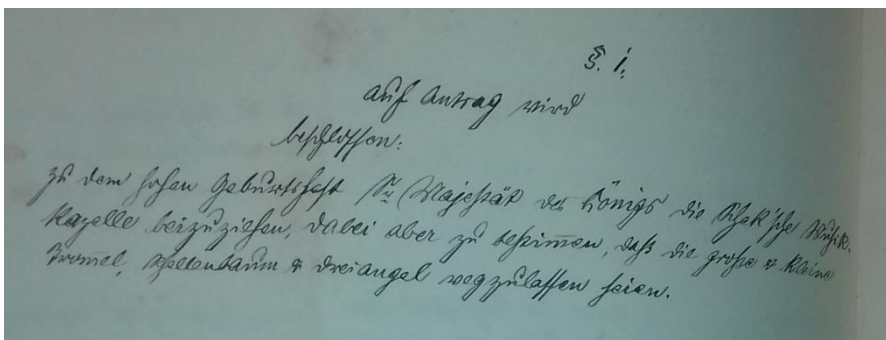 §. 1.
Auf Antrag wird
beschlossen:
zu dem hohen Geburtsfest Sr Majestät des Königs die Musik-
kapelle beizuziehen, dabei aber zu bestimmen, daß die große & kleine
Trom̅el, Schellenbaum & Dreiangel wegzulassen seien.